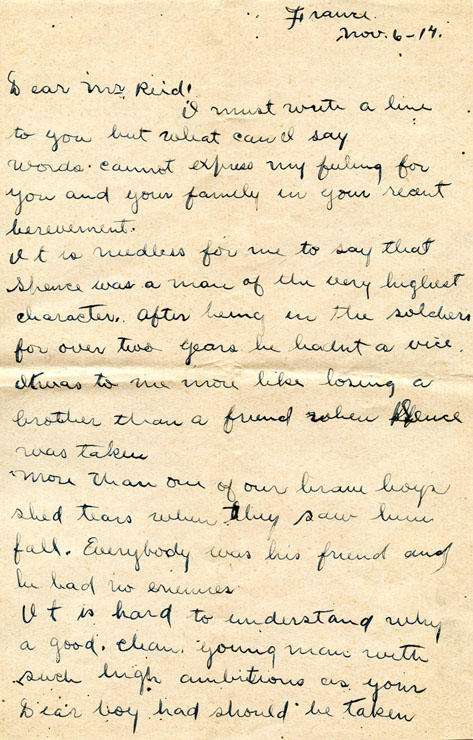 France.
Nov. 6-17.
Dear Mr Reid!
I must write a line
to you but what can I say
words cannot express my feeling for
you and your family in your recent
berevement.
It is needless for me to say that
Spence was a man of the very highest
character. After being in the soldiers
for over two years he hadnt a vice.
It was to me more like losing a
brother than a friend when Spence
was taken
More than one of our brave boys
shed tears when they saw him
fall. Everybody was his friend and
he had no enemies.
It is hard to understand why
a good, clean, young man with
such high ambitions as your
Dear boy had should be taken